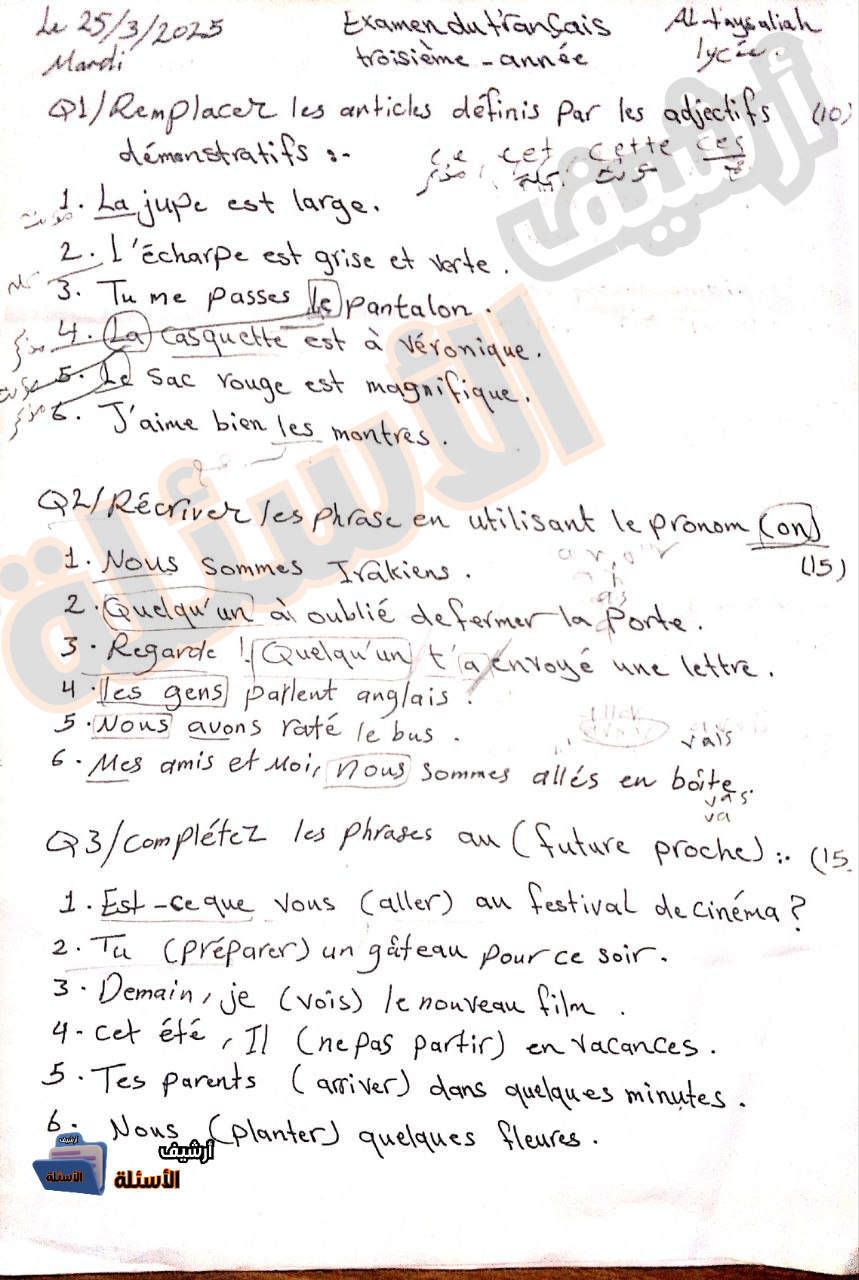 Le 25/3/2025 Examen du français Al-faysaliah
Mardi troisième - année lycée.
Q1/Remplacer les articles définis par les adjectifs (10)
démonstratifs :- ce, cet, cette ces
مذكر مؤنث
1. La jupe est large.
مؤنث
2. L'écharpe est grise et verte.
3. Tu me passes le pantalon.
4. La casquette est à Véronique.
مذكر
5. Le sac rouge est magnifique.
مؤنث
6. J'aime bien les montres.
مذكر
Q2/Récriver les phrase en utilisant le pronom (on)
(15)
1. Nous sommes Irakiens.
avoir
2. Quelqu'un à oublié de fermer la porte.
as
3. Regarde ! Quelqu'un t'a envoyé une lettre.
4. Les gens parlent anglais.
5. Nous avons raté le bus.
aller
vais
6. Mes amis et Moi, nous sommes allés en boîte.
vas
va
Q3/Complétez les phrases au (future proche) :. (15
1. Est-ce que vous (aller) au festival de cinéma?
2. Tu (préparer) un gâteau pour ce soir.
3. Demain, je (vois) le nouveau film.
4- Cet été, Il (ne pas partir) en vacances.
5. Tes parents (arriver) dans quelques minutes.
6. Nous (planter) quelques fleures.
أرشيف
الأسئلة
أرشيف
الأسئلة
أرشيف
الأسئلة